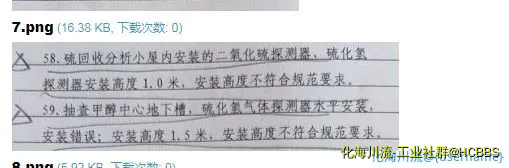 7.png (16.38 KB, 下载次数: 0)
58. 硫回收分析小屋内安装的二氧化硫探测器，硫化氢
探测器安装高度 1.0 米，安装高度不符合规范要求。
59. 抽查甲醇中心地下槽，硫化氢气体探测器水平安装，
安装错误；安装高度 1.5 米，安装高度不符合规范要求。
化海川流-工业社群@HCBBS
8.png (5.92 KB, 下载次数: 0)